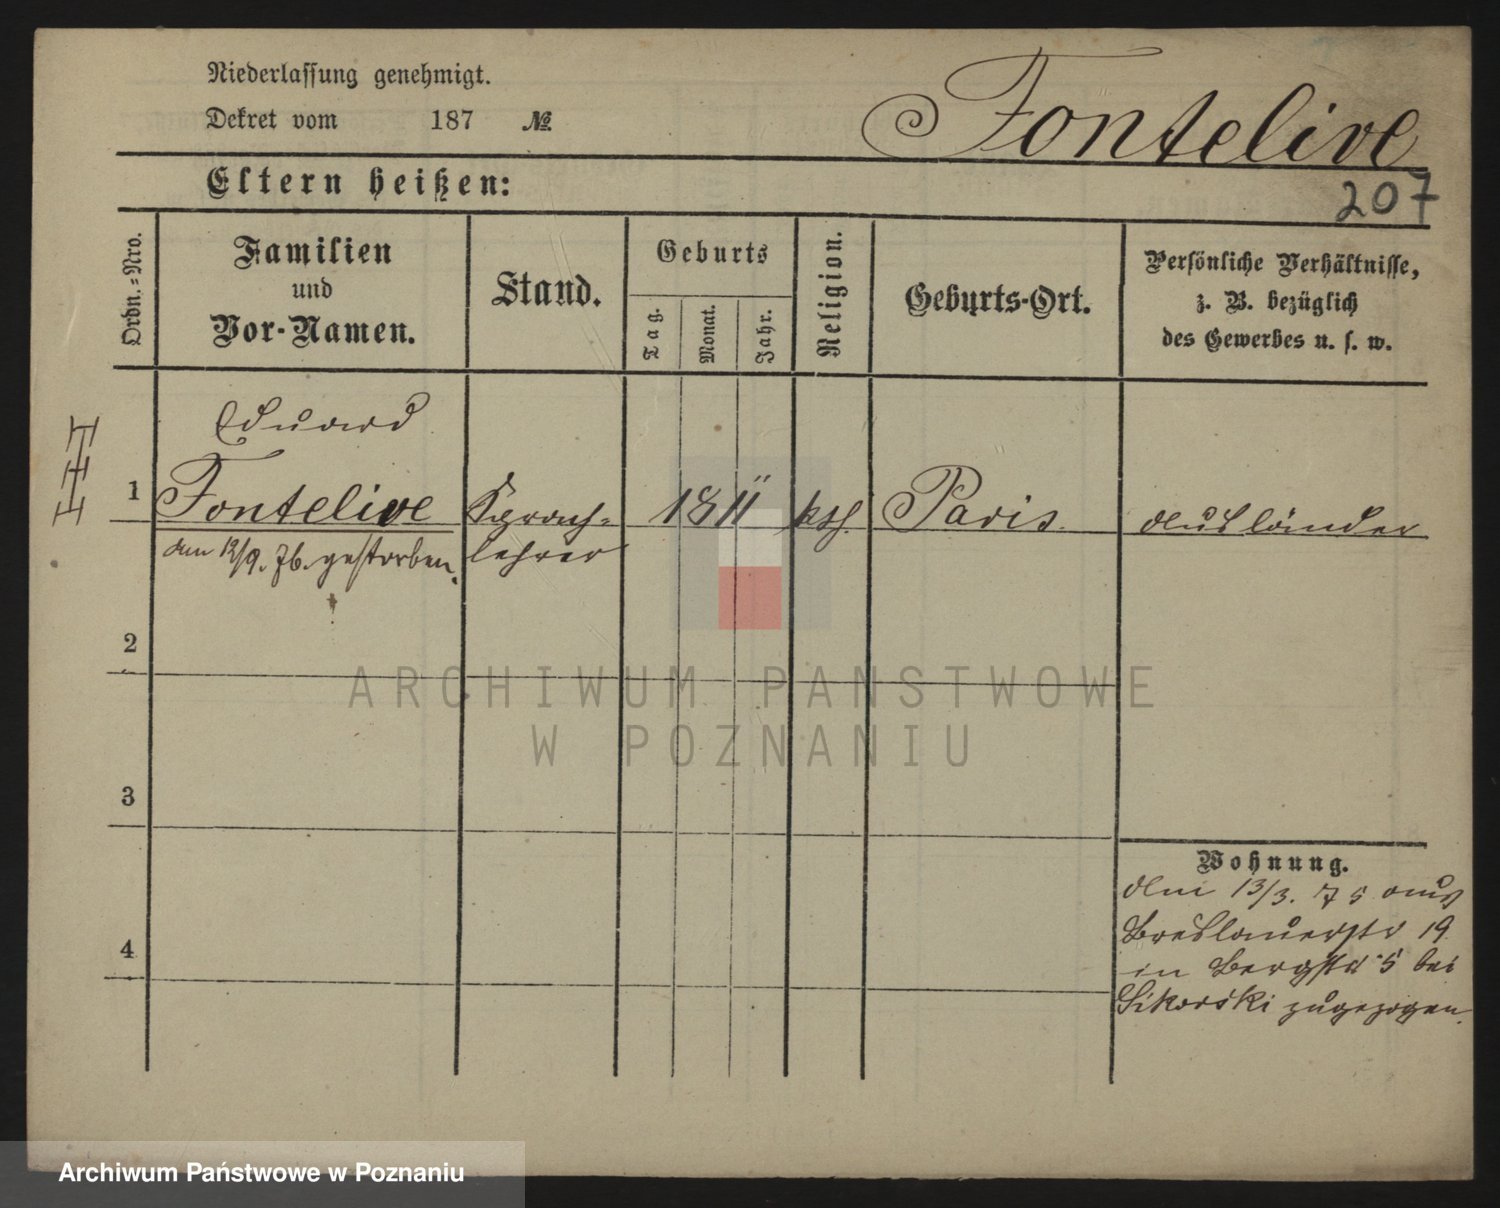 Niederlassung genehmigt.
Dekret vom 187 №
Fontelive
207
Eltern heißen:
Ordn.-Nro.
Familien und Vor-Namen.
Stand.
Geburts
Tag.
Monat.
Jahr.
Religion.
Geburts-Ort.
Persönliche Verhältnisse,
z. B. bezüglich
des Gewerbes u. s. w.
Eduard
1 Fontelive Sprach- 1811 kth. Paris Ausländer
am 12/9. 76. gestorben. lehrer
2
3
4
Wohnung.
Am 13/3. 75 aus
Breslauerstr 19
in Bergstr 5 bei
Sikorski zugezogen.
ARCHIWUM PAŃSTWOWE
W POZNANIU
Archiwum Państwowe w Poznaniu